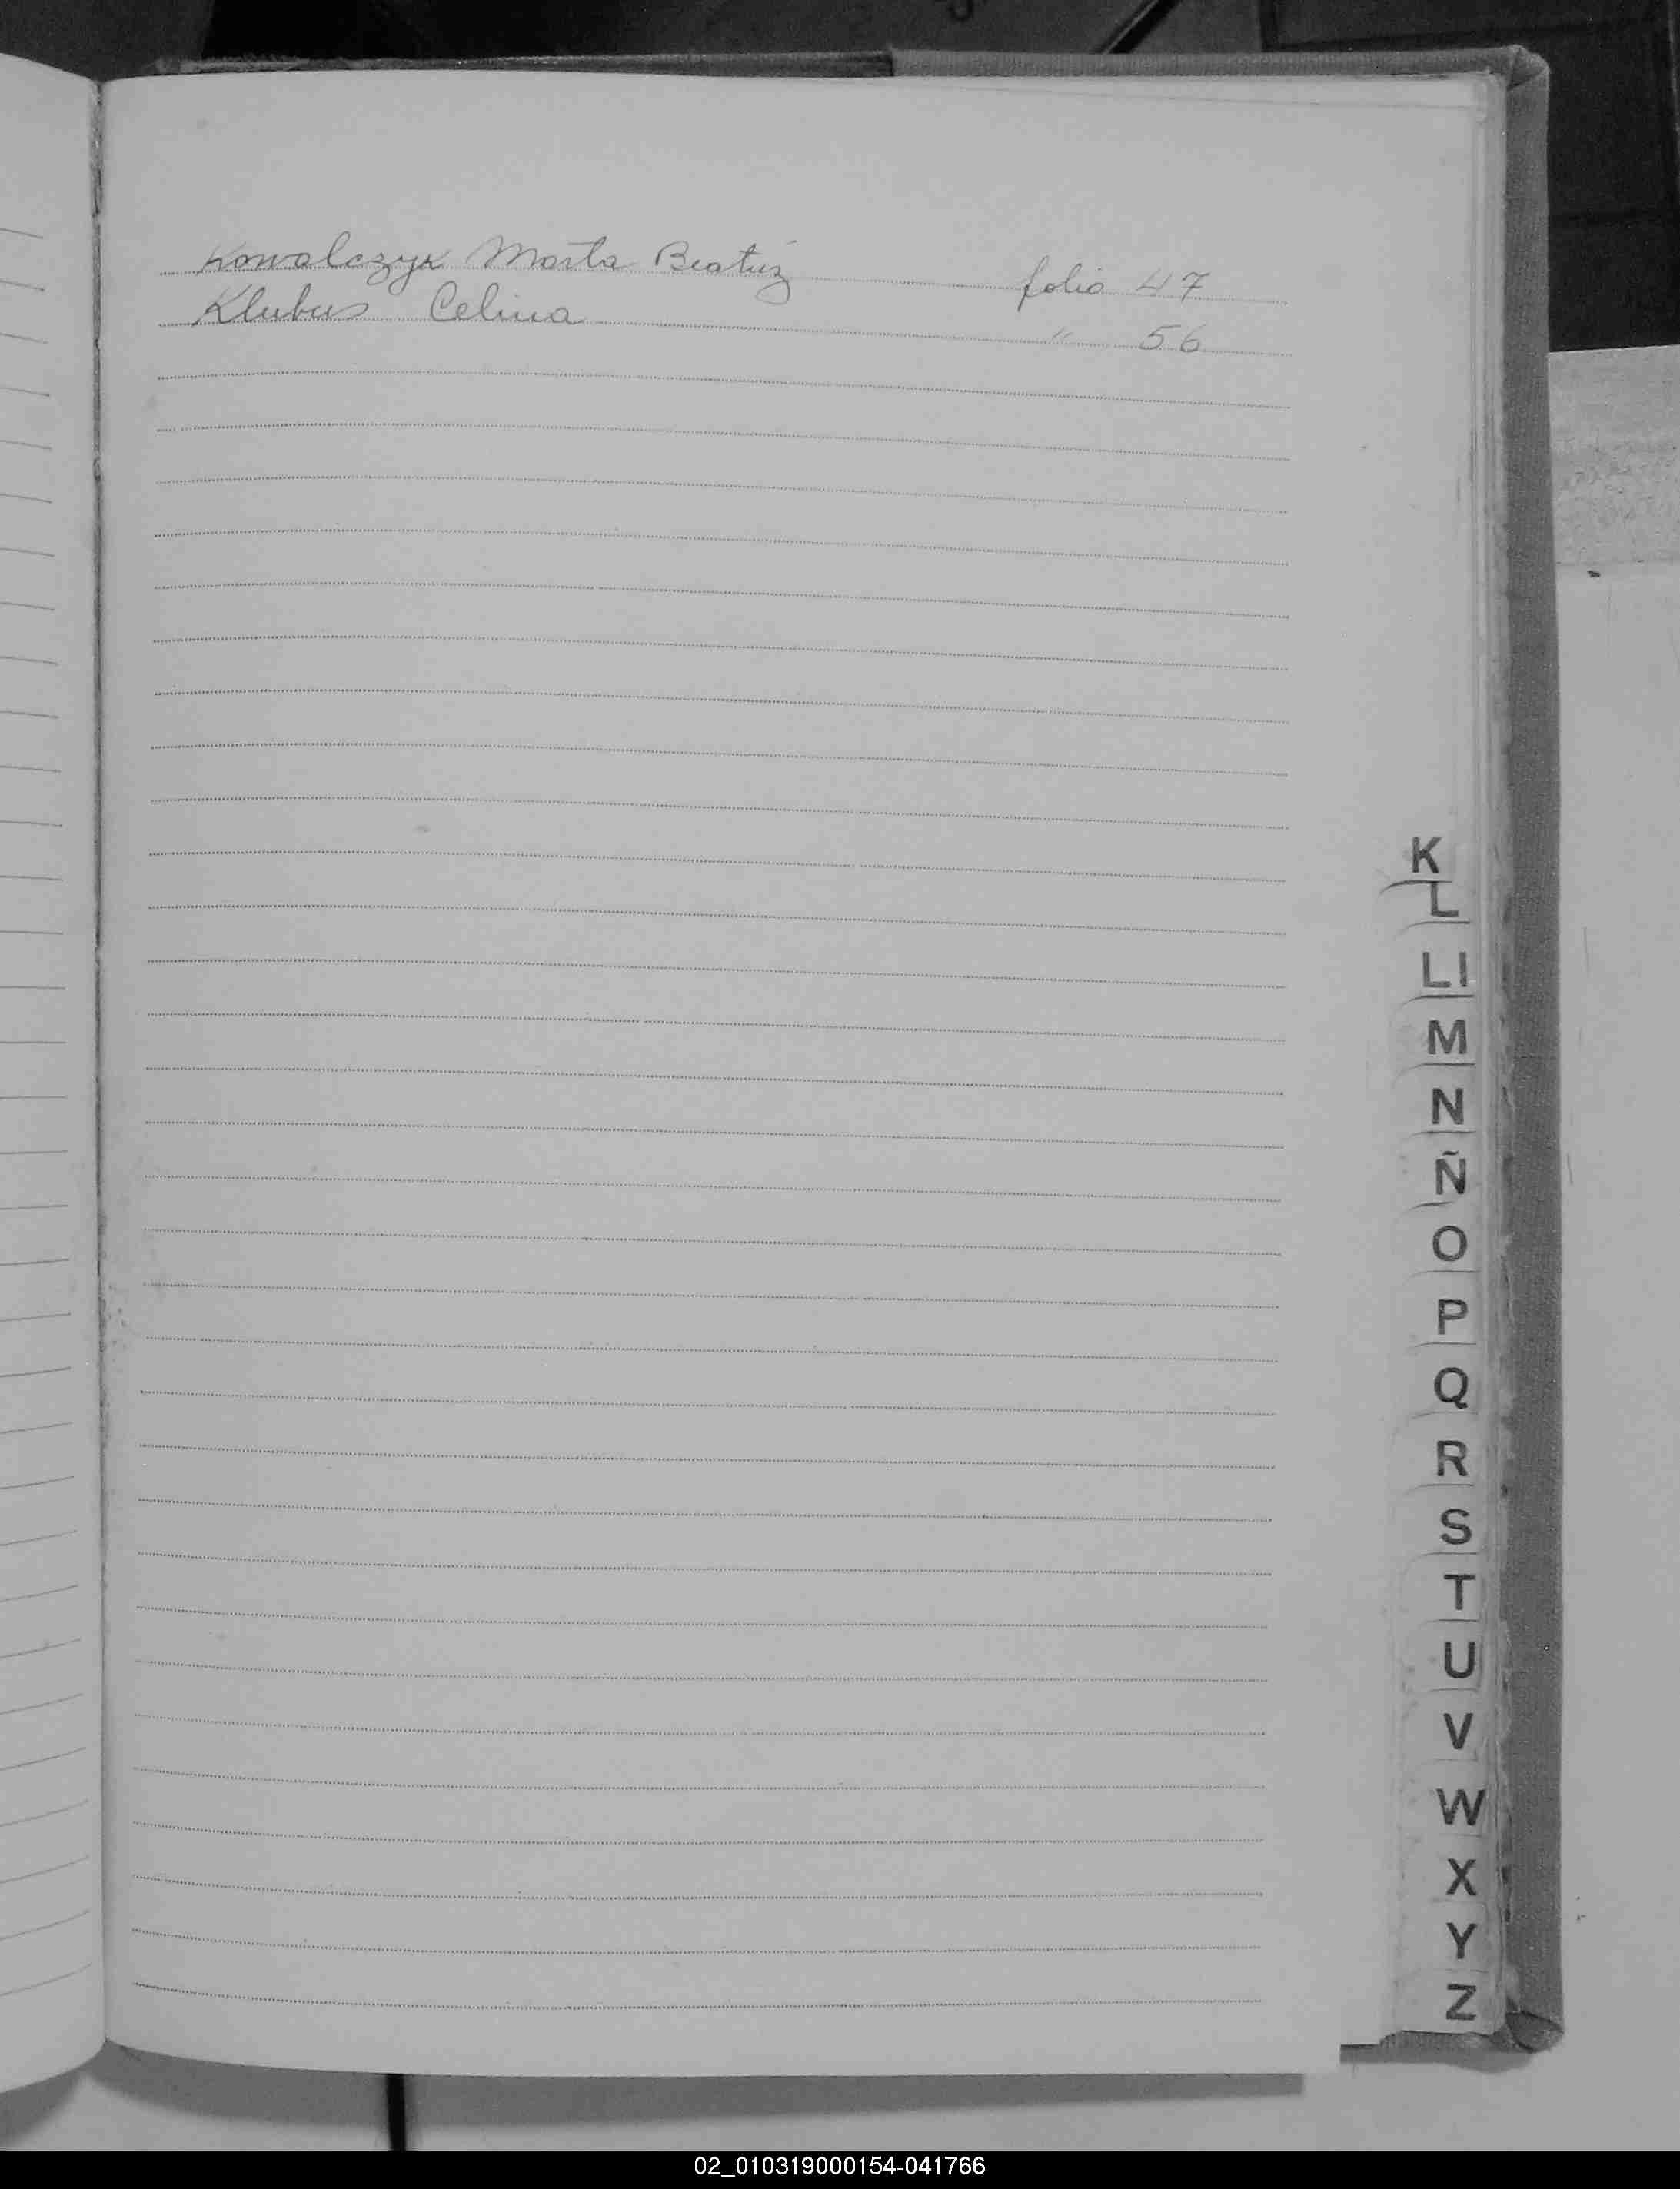 Kowalczyk Marta Beatriz folio 47
Klubus Celina " 56
K
L
Ll
M
N
Ñ
O
P
Q
R
S
T
U
V
W
X
Y
Z
02_010319000154-041766